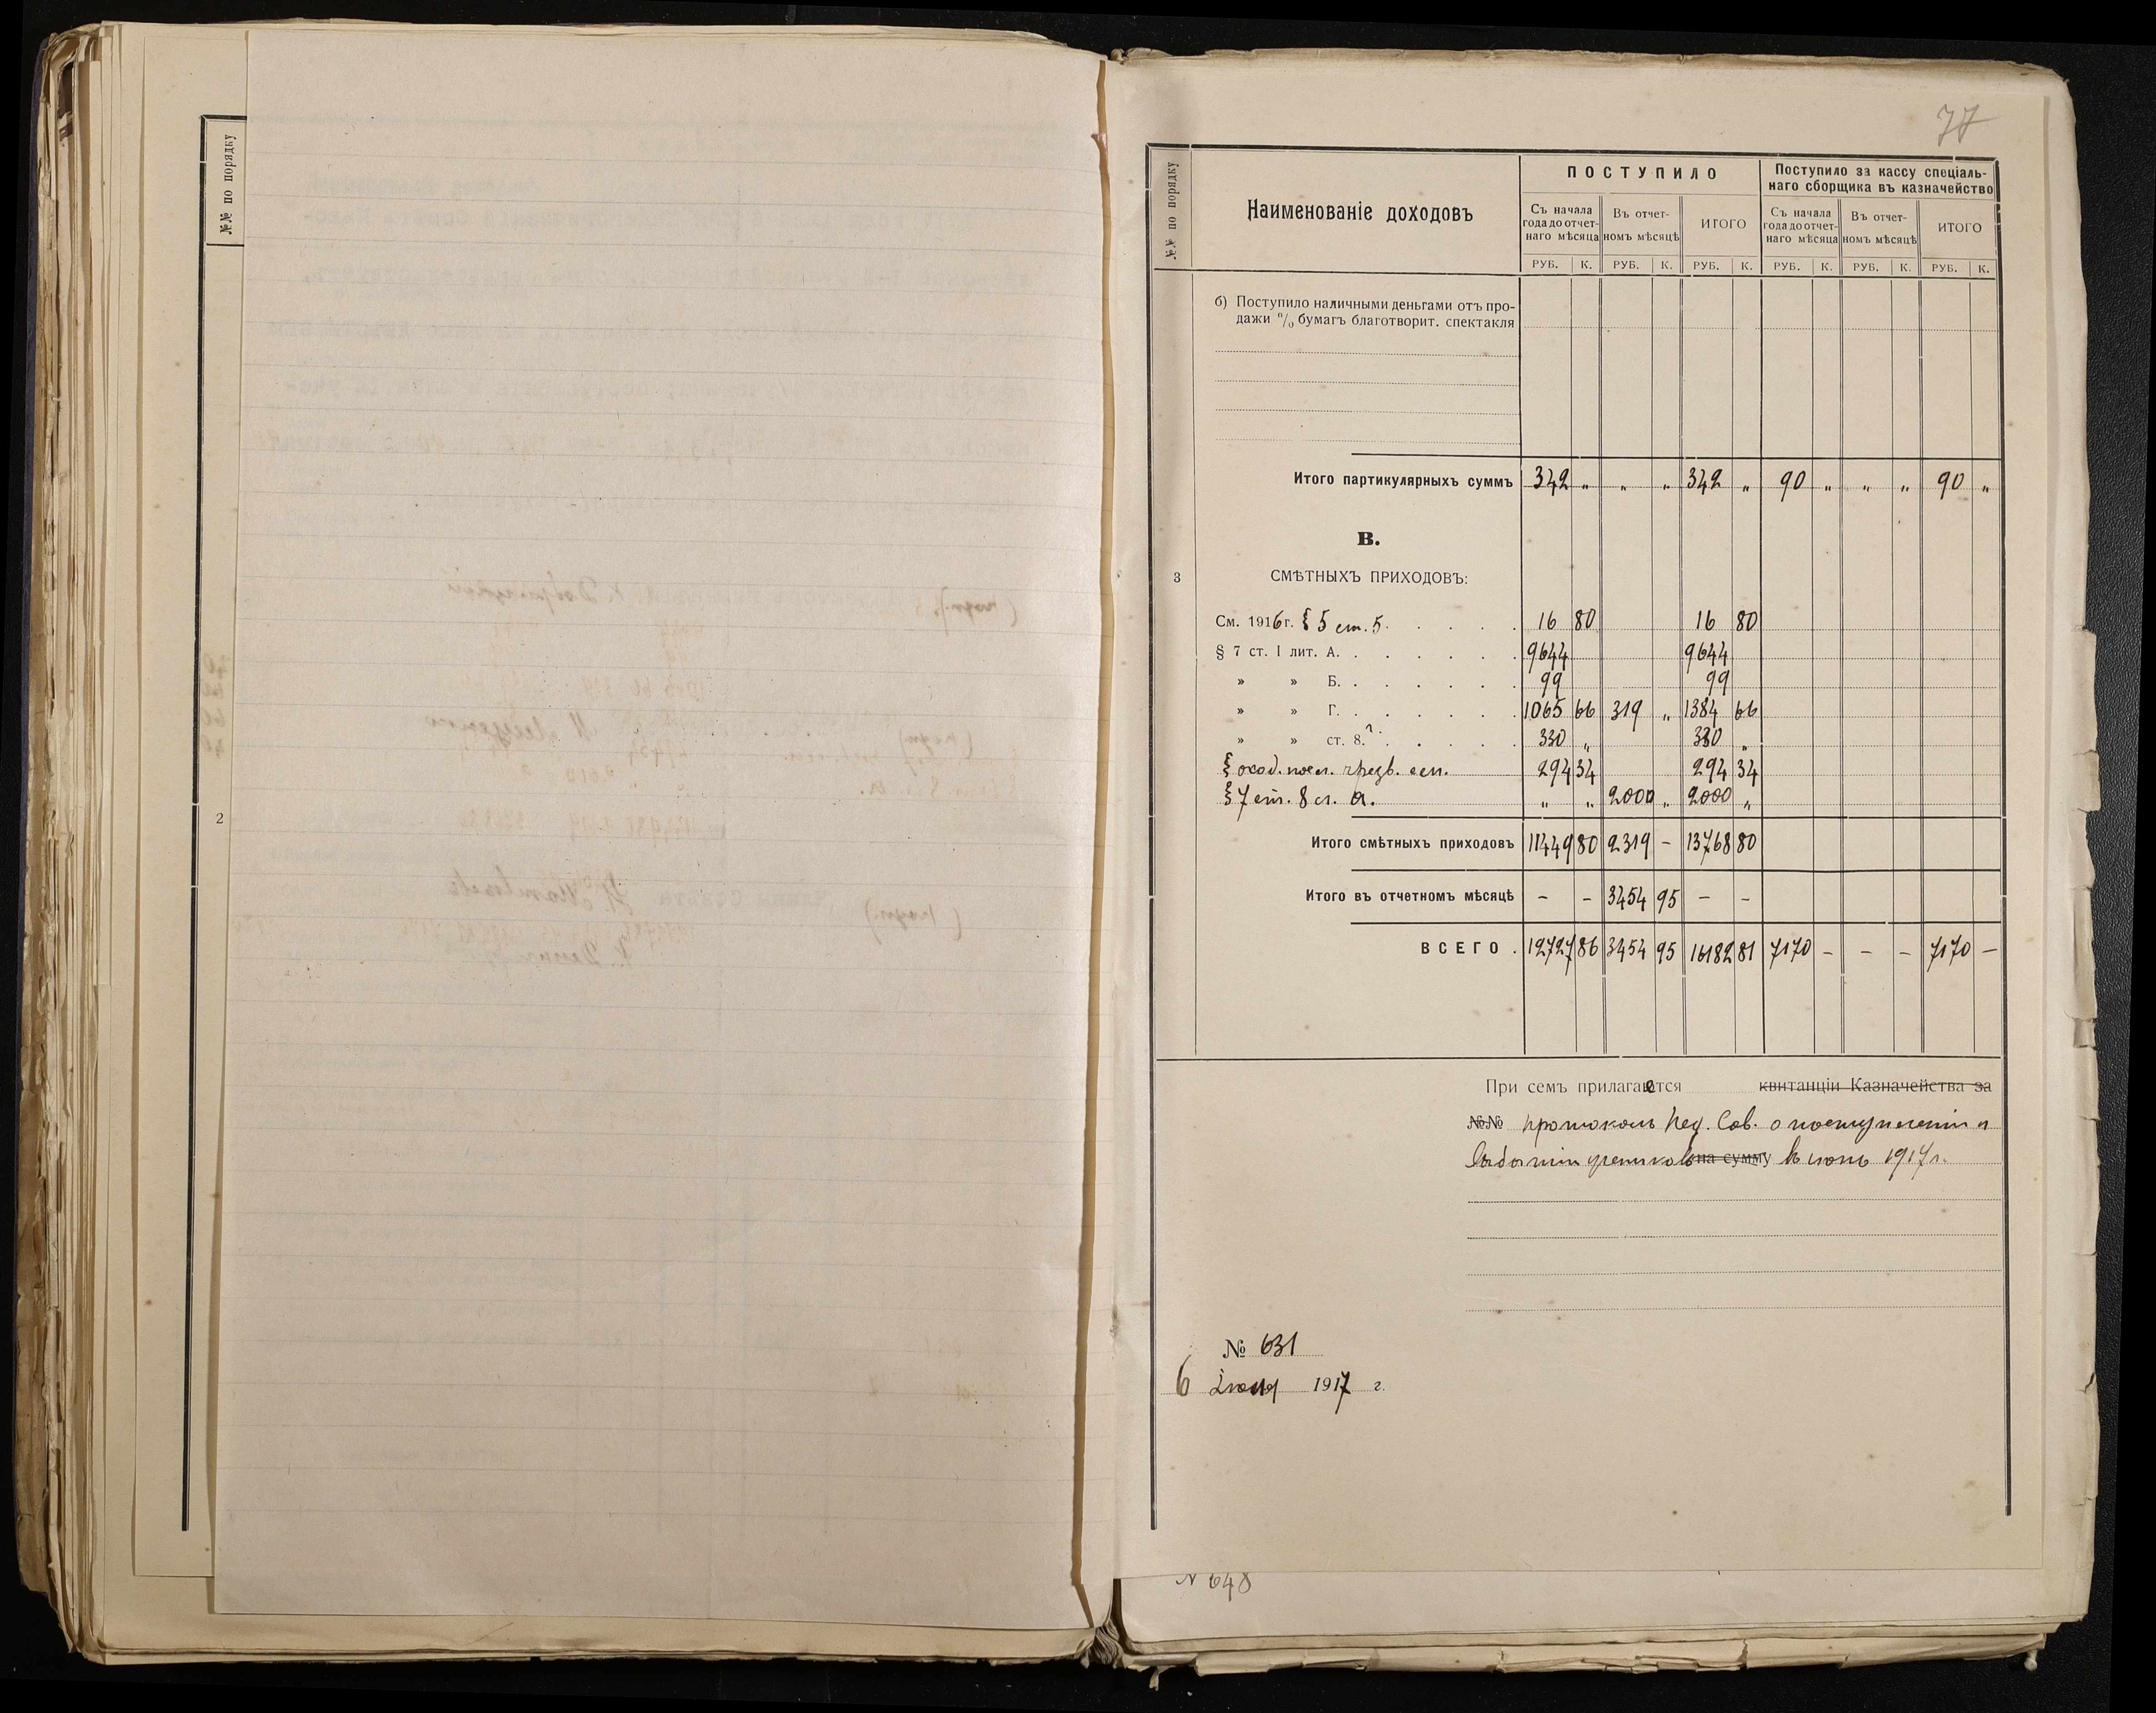 №№ по порядку
2
77
№№ по порядку
Наименованіе доходовъ
ПОСТУПИЛО
Поступило за кассу спеціаль-
наго сборщика въ казначейство
Съ начала года до отчет-наго мѣсяца Въ отчет-номъ мѣсяцѣ ИТОГО Съ начала года до отчет-наго мѣсяца Въ отчет-номъ мѣсяцѣ ИТОГО
РУБ. К. РУБ. К. РУБ. К. РУБ. К. РУБ. К. РУБ. К.
б) Поступило наличными деньгами отъ про-
дажи % бумагъ благотворит. спектакля
Итого партикулярныхъ суммъ 342 „ „ „ 342 „ 90 „ „ „ 90 „
В.
3 СМѢТНЫХЪ ПРИХОДОВЪ:
См. 1916 г. § 5 ст. 5. 16 80 16 80
§ 7 ст. I лит. А. 9644 9644
» » Б. 99 99
» » Г. 1065 66 319 „ 1384 66
» » ст. 8. 330 „ 330 „
294 34 294 34
§ 7 ст. 8 а. „ „ 2000 „ 2000 „
Итого смѣтныхъ приходовъ 11449 80 2319 – 13768 80
Итого въ отчетномъ мѣсяцѣ – – 3454 95 – –
ВСЕГО 12727 86 3454 95 16182 81 7170 – – – 7170 –
При семъ прилагается квитанціи Казначейства за
№№ протоколъ Пед. Сов. о поступленіи и
выбытіи учениковъ на сумму въ 1917 г.
№ 631
6 1917 г.
N 648